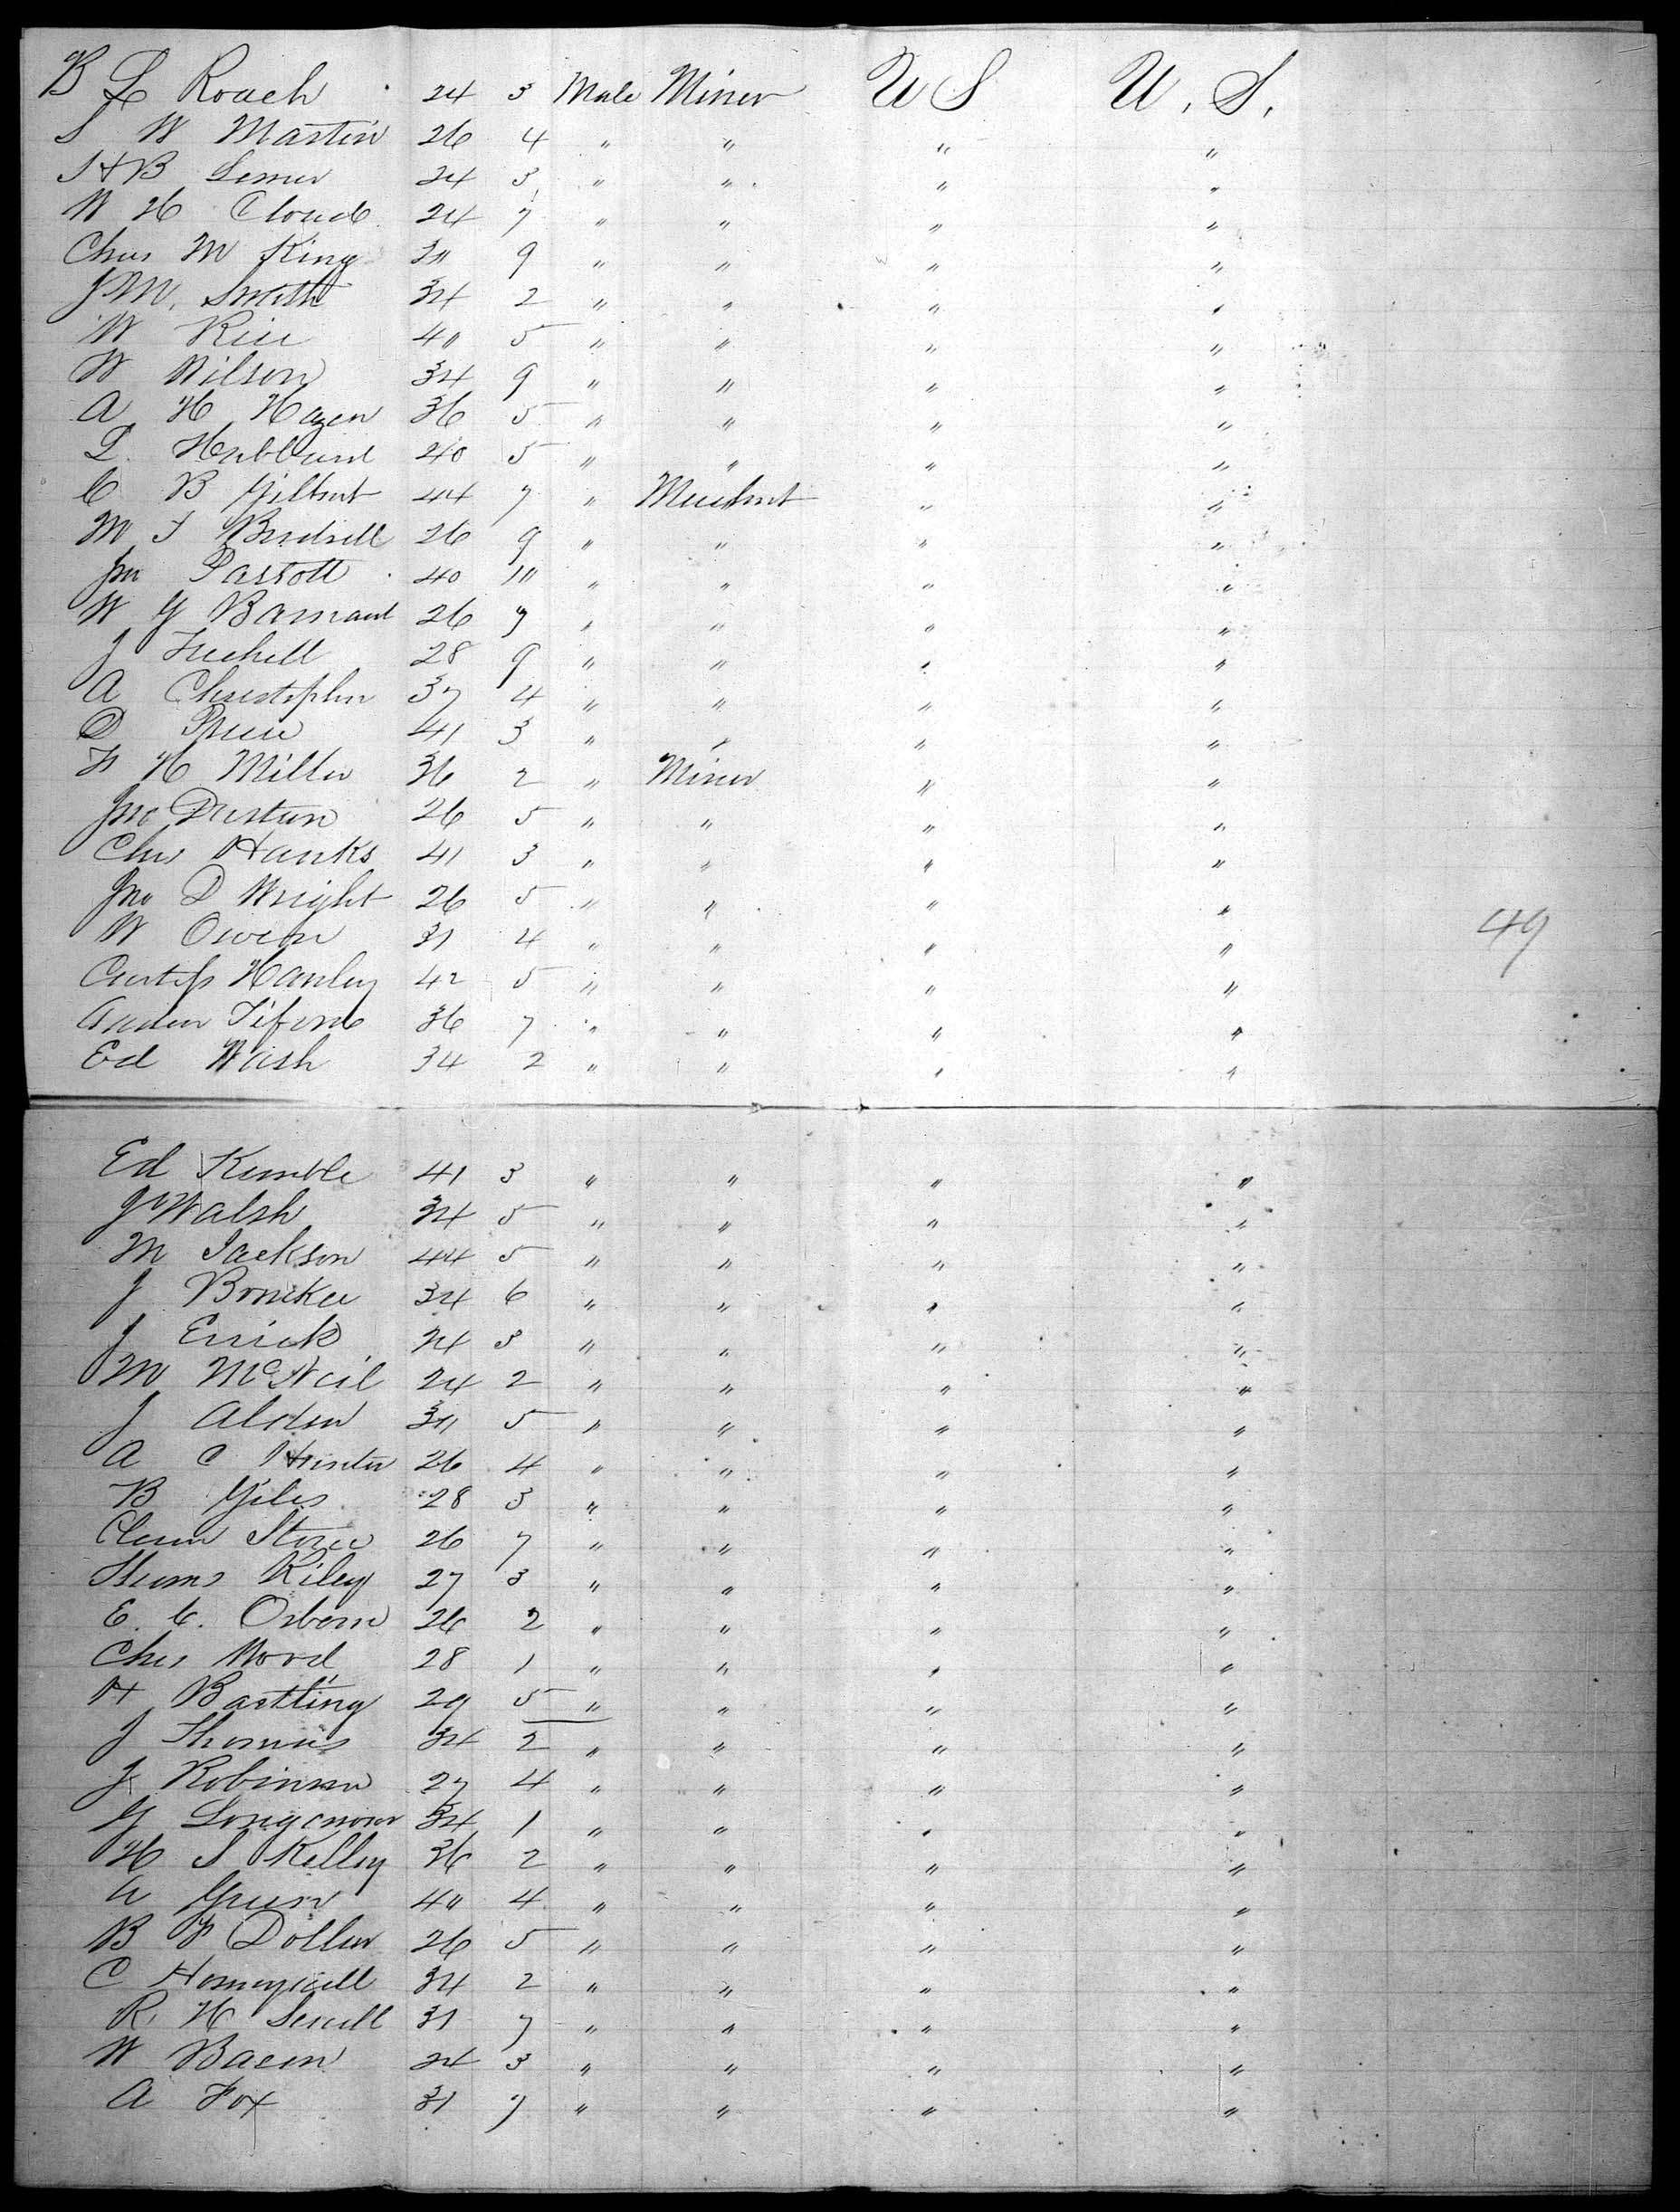 B L Roach 24 3 Male Miner U S U. S.
S W Martin 26 4 " " " "
24 3 " " " "
W H Cloud 24 7 " " " "
Chas M King 9 " " " "
J M. Smith 34 2 " " " "
W Rice 4" 5 " " " "
W Wilson 34 9 " " " "
A H Hazen 36 5 " " " "
L. Hubbard 40 5 " " " "
C B Gilbert 44 7 " Merchant " "
M 26 9 " " " "
Jno Parrott 40 1" " " " "
W G Barnard 26 7 " " " "
J 28 9 " " " "
A Christopher 37 4 " " " "
D 41 3 " " " "
H Miller 36 2 " Miner " "
Jno 26 5 " " " "
Chas Hanks 41 3 " " " "
Jno D Wright 26 5 " " " "
49
W Owen 31 4 " " " "
Curtiss Hanley 42 5 " " " "
36 7 " " " "
Ed Wash 34 2 " " " "
Ed Kemble 41 3 " " " "
J Walsh 34 5 " " " "
M Jackson 44 5 " " " "
J 34 6 " " " "
J Errick 24 3 " " " "
M McNeil 24 2 " " " "
J Alden 3" 5 " " " "
A C Hunter 26 4 " " " "
B Giles 28 3 " " " "
Clem Stone 26 7 " " " "
Riley 27 3 " " " "
E. C. Osborn 26 2 " " " "
Chas Wood 28 1 " " " "
H Bartling 29 5 " " " "
J Thomas 34 2 " " " "
J Robinson 27 4 " " " "
G 34 1 " " " "
H S Kelley 36 2 " " " "
Green 4" 4 " " " "
B F Dollar 26 5 " " " "
C Honeywell 34 2 " " " "
R. H Sewell 31 7 " " " "
W Bacon 24 3 " " " "
A Fox 31 7 " " " "